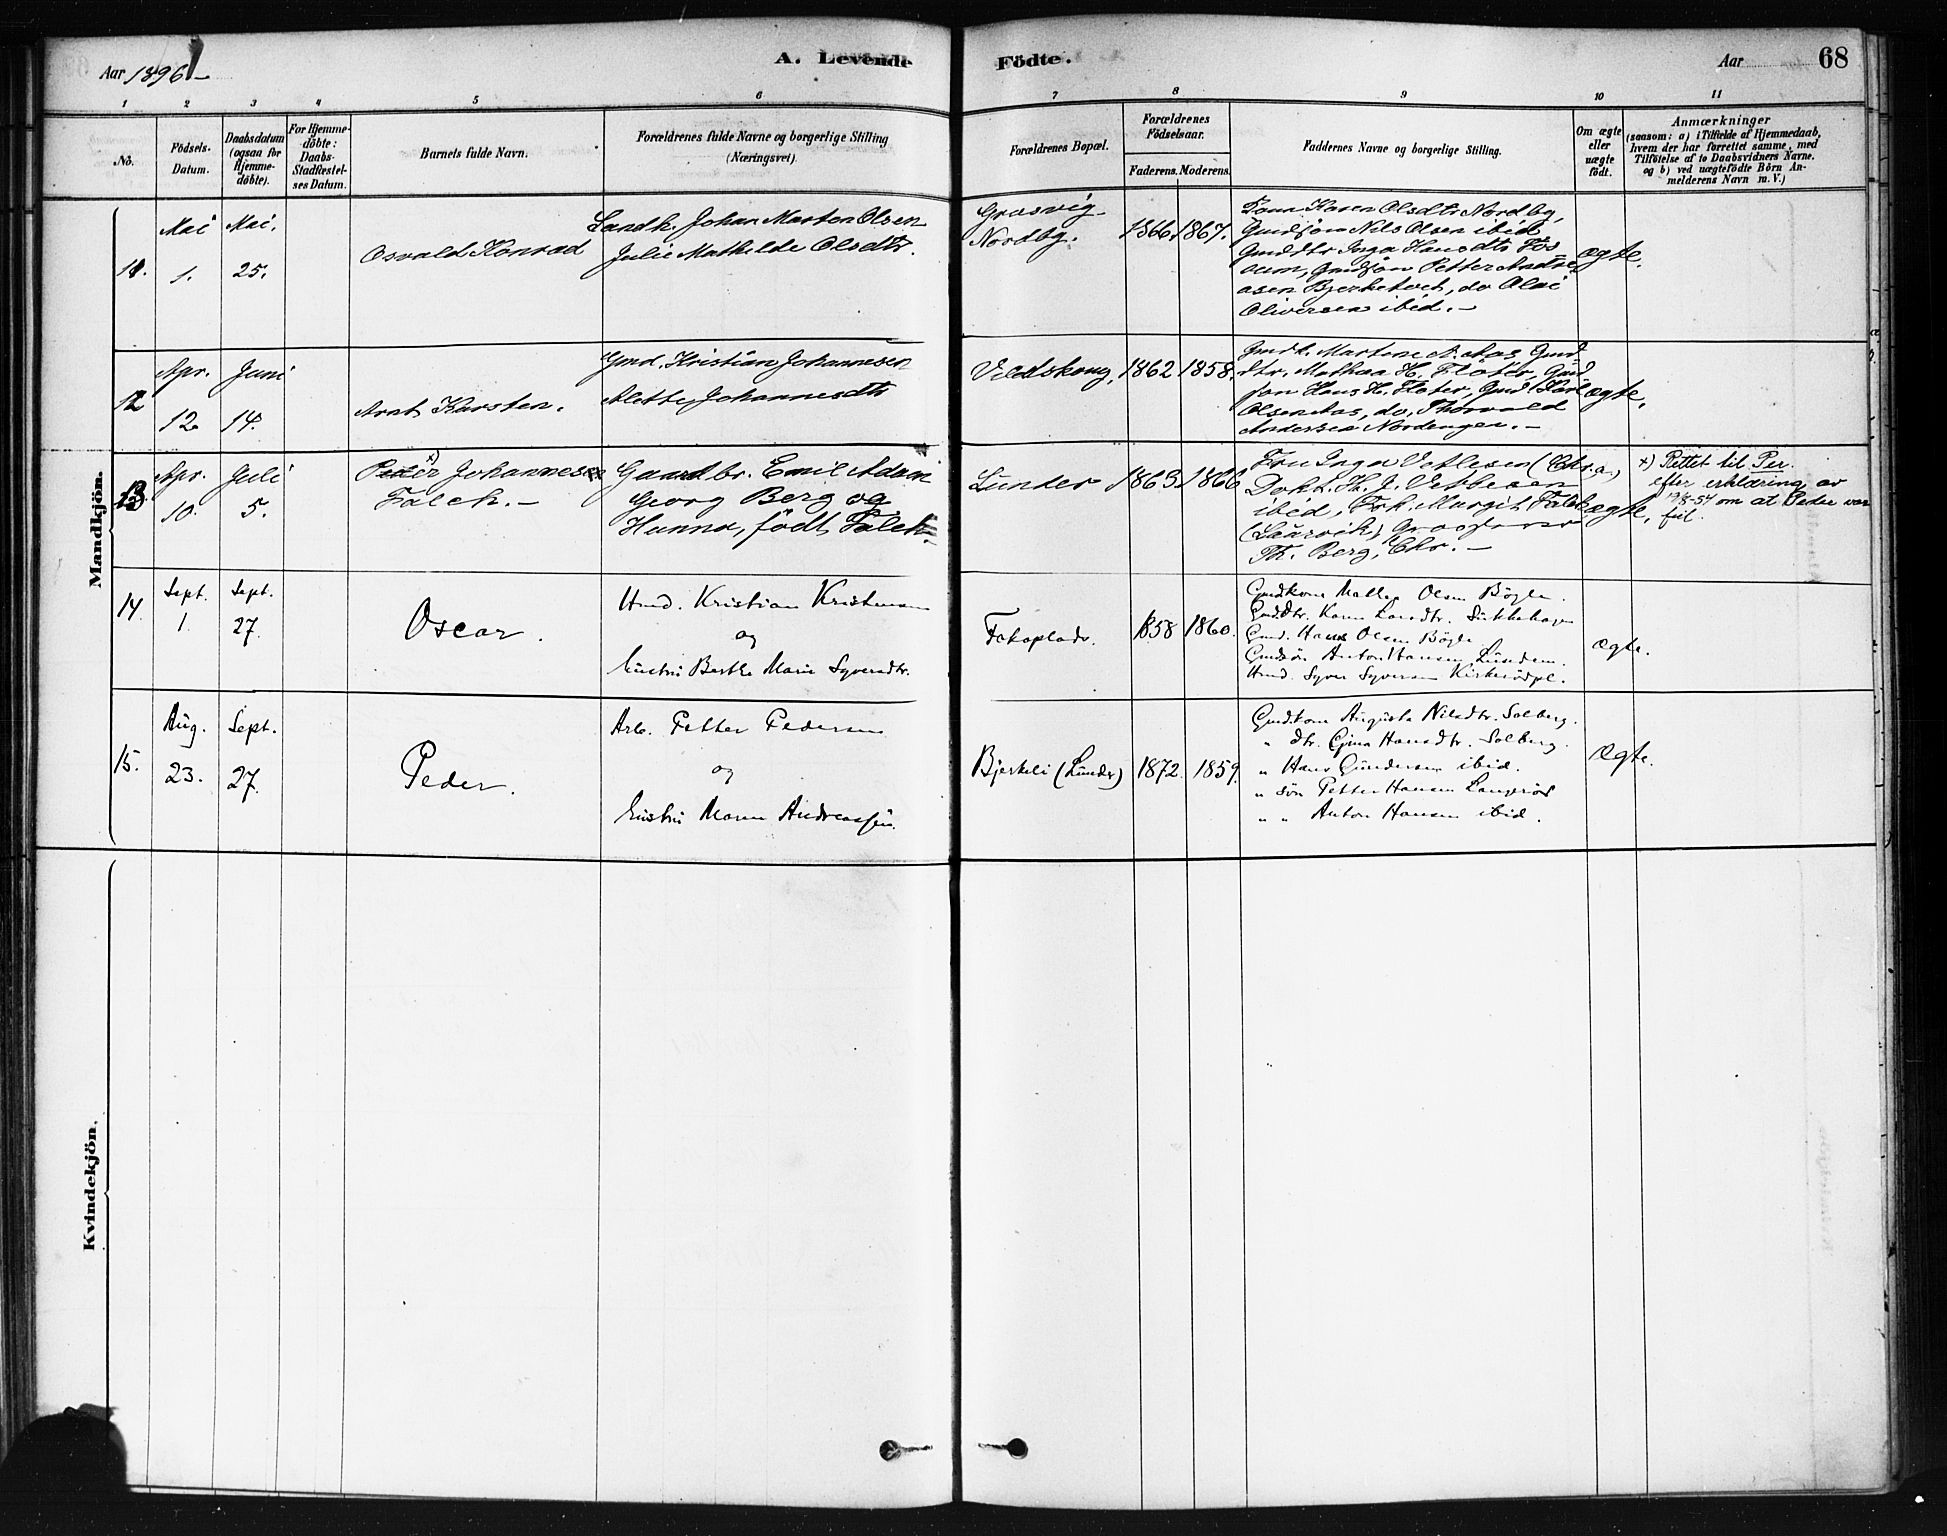 Aar 1896 –
A. Levende Födte.
Aar
68
1 2 3 4 5 6 7 8 9 10 11
No.
Födsels-
Datum.
Daabsdatum
(ogsaa for
Hjemme-
döbte).
For Hjemme-
döbte:
Daabs-
Stadfæstel-
ses Datum.
Barnets fulde Navn.
Forældrenes fulde Navne og borgerlige Stilling
(Næringsvei).
Forældrenes Bopæl.
Forældrenes
Födselsaar.
Faderens. Moderens.
Faddernes Navne og borgerlige Stilling.
Om ægte
eller
uægte
födt.
Anmærkninger
(saasom: a) i Tilfælde af Hjemmedaab,
hvem der har forrettet samme, med
Tilföielse af to Daabsvidners Navne,
og b) ved uægtefödte Börn An-
melderens Navn m. V.)
Mandkjön.
11.
Mai
1.
Mai.
25.
Osvald Konrad
Landh. Johan Marten Olsen
Julie Mathilde Olsdtr.
Græsvig
Nordby.
1866. 1867.
Karen Olsdtr Nordby,
Gmdsjøn Nils Olsen ibid
Gmddtr Inga Hansdtr Fos
sum, Gmdsjøn Petter Andre
asen Bjerketvet, do Olai
Oliversen ibid. –
ægte.
12
Apr.
12.
Juni
14.
Arnt Karsten.
Gmd. Kristian Johannesen
Alette Johannesdtr
1862 1858.
Gmdk. Martene N. Aas, Gmd
dtr. Mathea H. Fløter, Gmd
søn Hans H. Fløter, Gmd
Olsen Aas, do. Thorvald
Andersen Nordengen. –
ægte.
13.
Apr.
10.
Juli
5.
x)
Peder Johannes
Falck. –
Gaardbr. Emil Adam
Georg Berg og
Hanna, født Falck.
Lunder
1863. 1866
Fru Inga Vetlesen (Chr.a.,)
Dokt. H. J. Vetlesen
ibid, Frk. Margit Falck
(Laurvik) Grosserer
Th. Berg, Chr. –
ægte,
x) Rettet til Per.
efter erklæring av
19/8-54 om at Peder var
feil.
14.
Sept.
1.
Sept.
27.
Oscar.
Hmd. Kristian Kristensen
og
Hustru Berthe Marie Syversdtr.
1858 1860.
Gmdkone Mathea Olsen Bøgle.
Gmddtr. Karen
Gmd. Hans Olsen Bøgle
Gmdsøn Anton Hansen Lundem.
Hmd. Syver Syversen Kirkerødpl.
ægte.
15.
Aug.
23.
Sept.
27.
Peder.
Arb. Petter Pedersen
og
Hustru Maren Andreassen.
Bjerkeli (Lunder)
1872. 1859.
Gmdkone Augusta Nilsdtr. Solberg.
" dtr. Gina Hansdtr. Solberg.
" Hans Gundersen ibid.
" søn Petter Hansen Langerød
" " Anton Hansen ibid.
Ægte.
Kvindekjön.